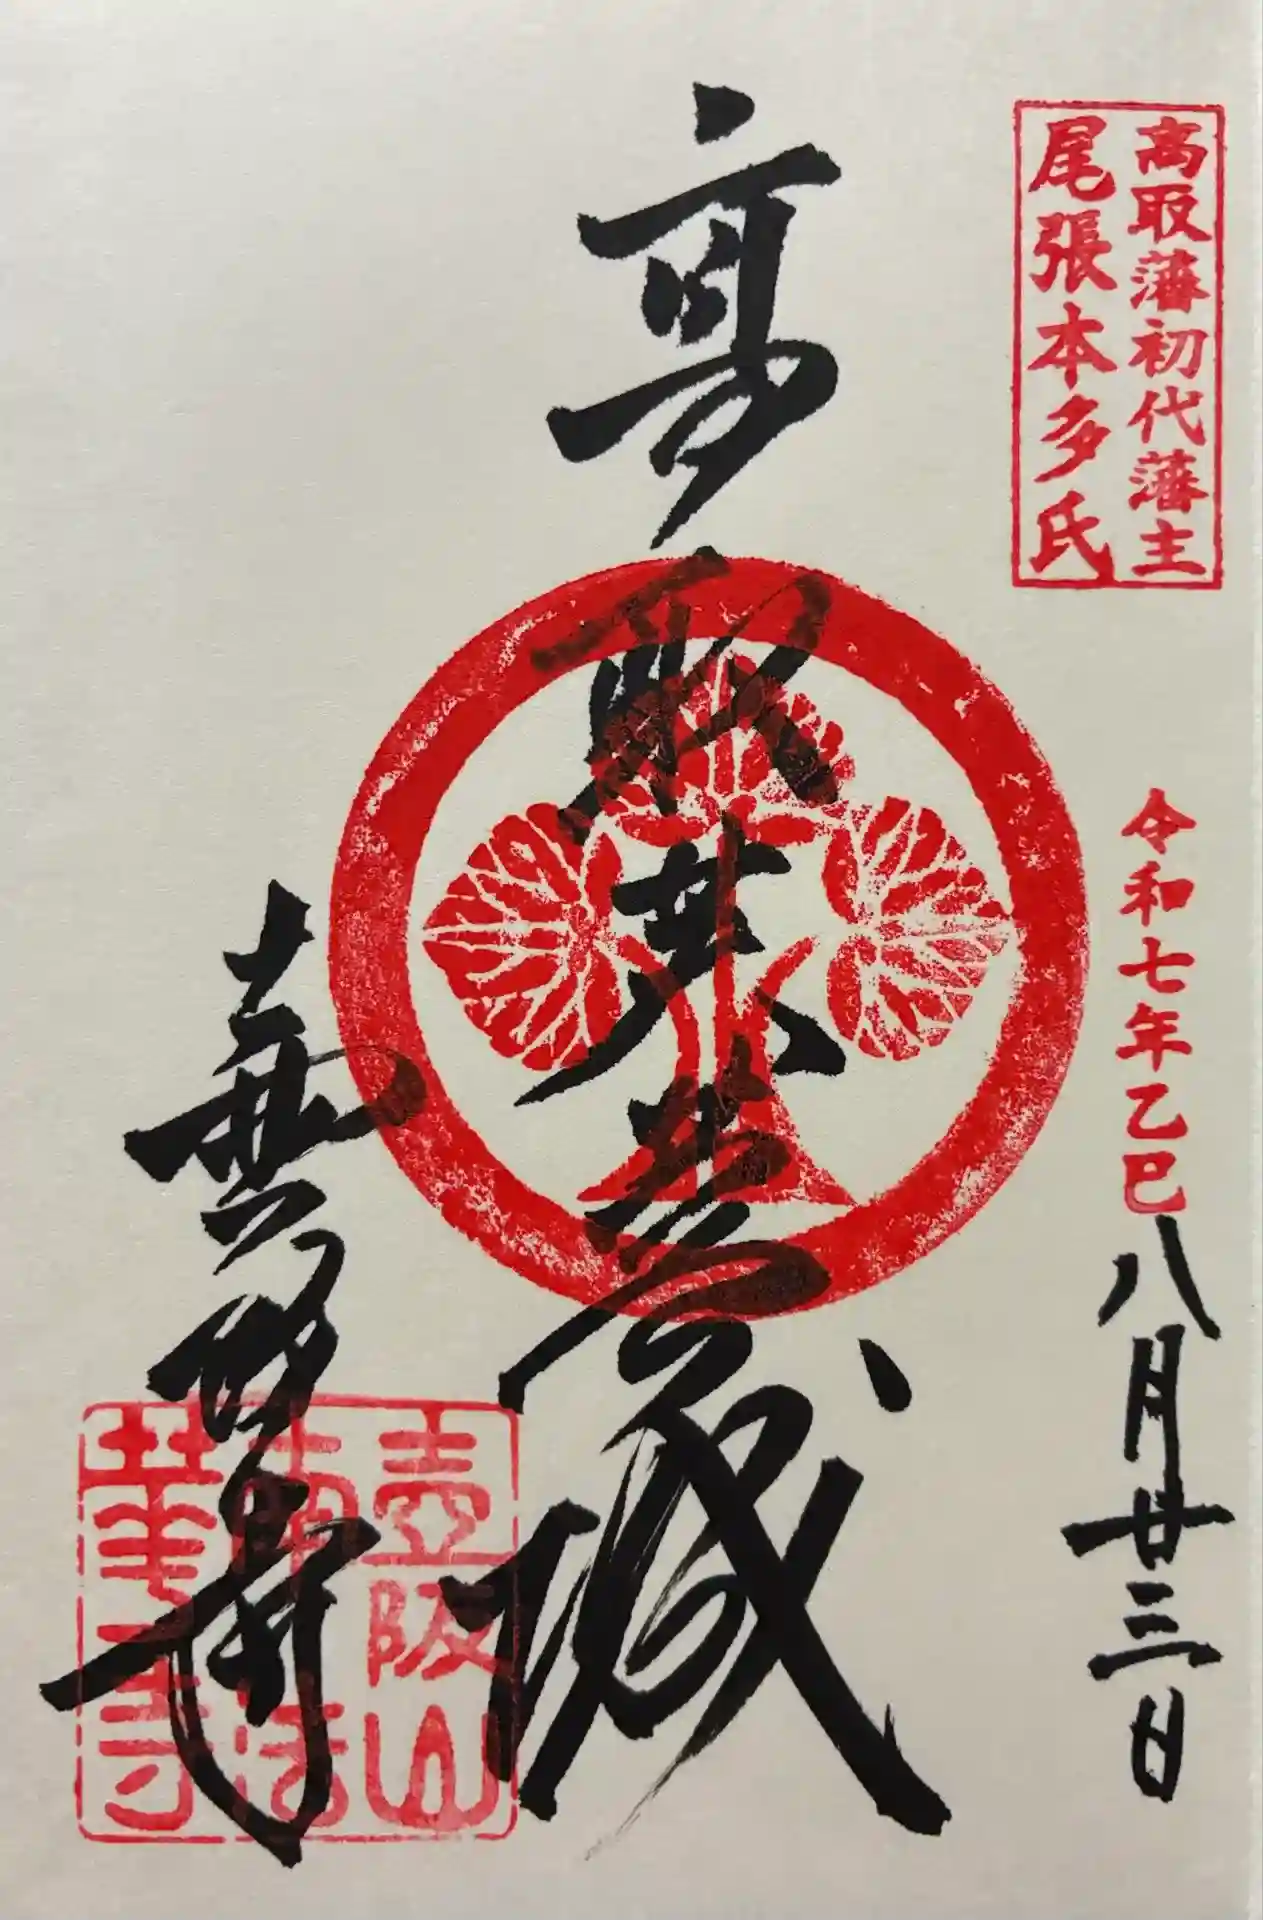 高取藩初代藩主
尾張本多氏
令和七年乙巳八月廿三日
高取芙蓉城
壷阪寺
壷阪山
南法
華寺